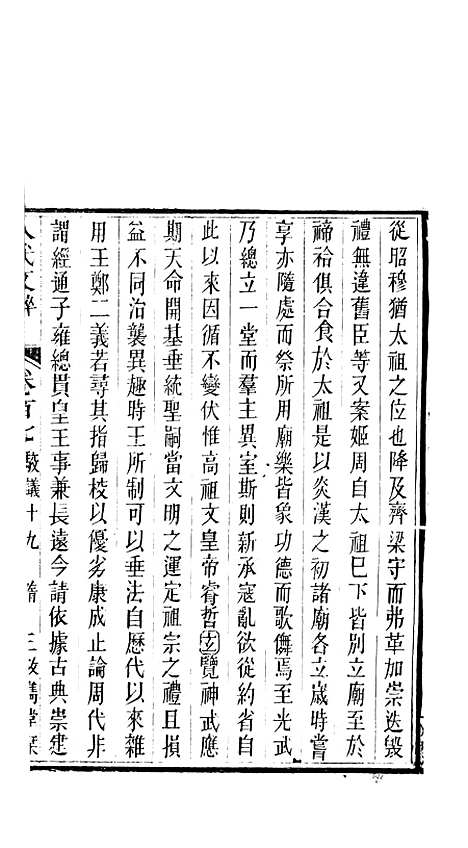 從昭穆猶太祖之位也降及齊梁守而弗革加崇迭毀
禮無違舊臣等又案姬周自太祖已下皆別立廟至於
禘祫俱合食於太祖是以炎漢之初諸廟各立歲時嘗
享亦隨處而祭所用廟樂皆象功德而歌儛焉至光武
乃總立一堂而羣主異室斯則新承寇亂欲從約省自
此以來因循不變伏惟高祖文皇帝睿哲立覽神武應
期天命開基垂統聖嗣當文明之運定祖宗之禮且損
益不同沿襲異趣時王所制可以垂法自歷代以來雜
用王鄭二義若尋其指歸校以優劣康成止論周代非
謂經通子雍總貫皇王事兼長遠今請依據古典崇建
八代文粹 卷百七 駮議十九 隋